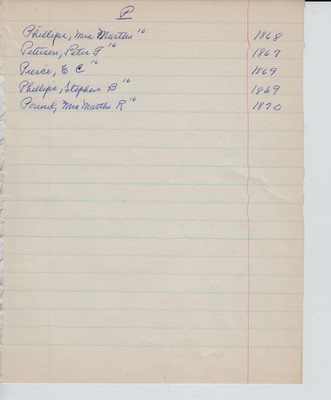 P
Phillips, Mrs Martha "16" 1868
Petersen, Peter G "16" 1867
Pierce, E C "16" 1869
Phillips, Stephen B "16" 1869
Pound, Mrs Martha R "16" 1870